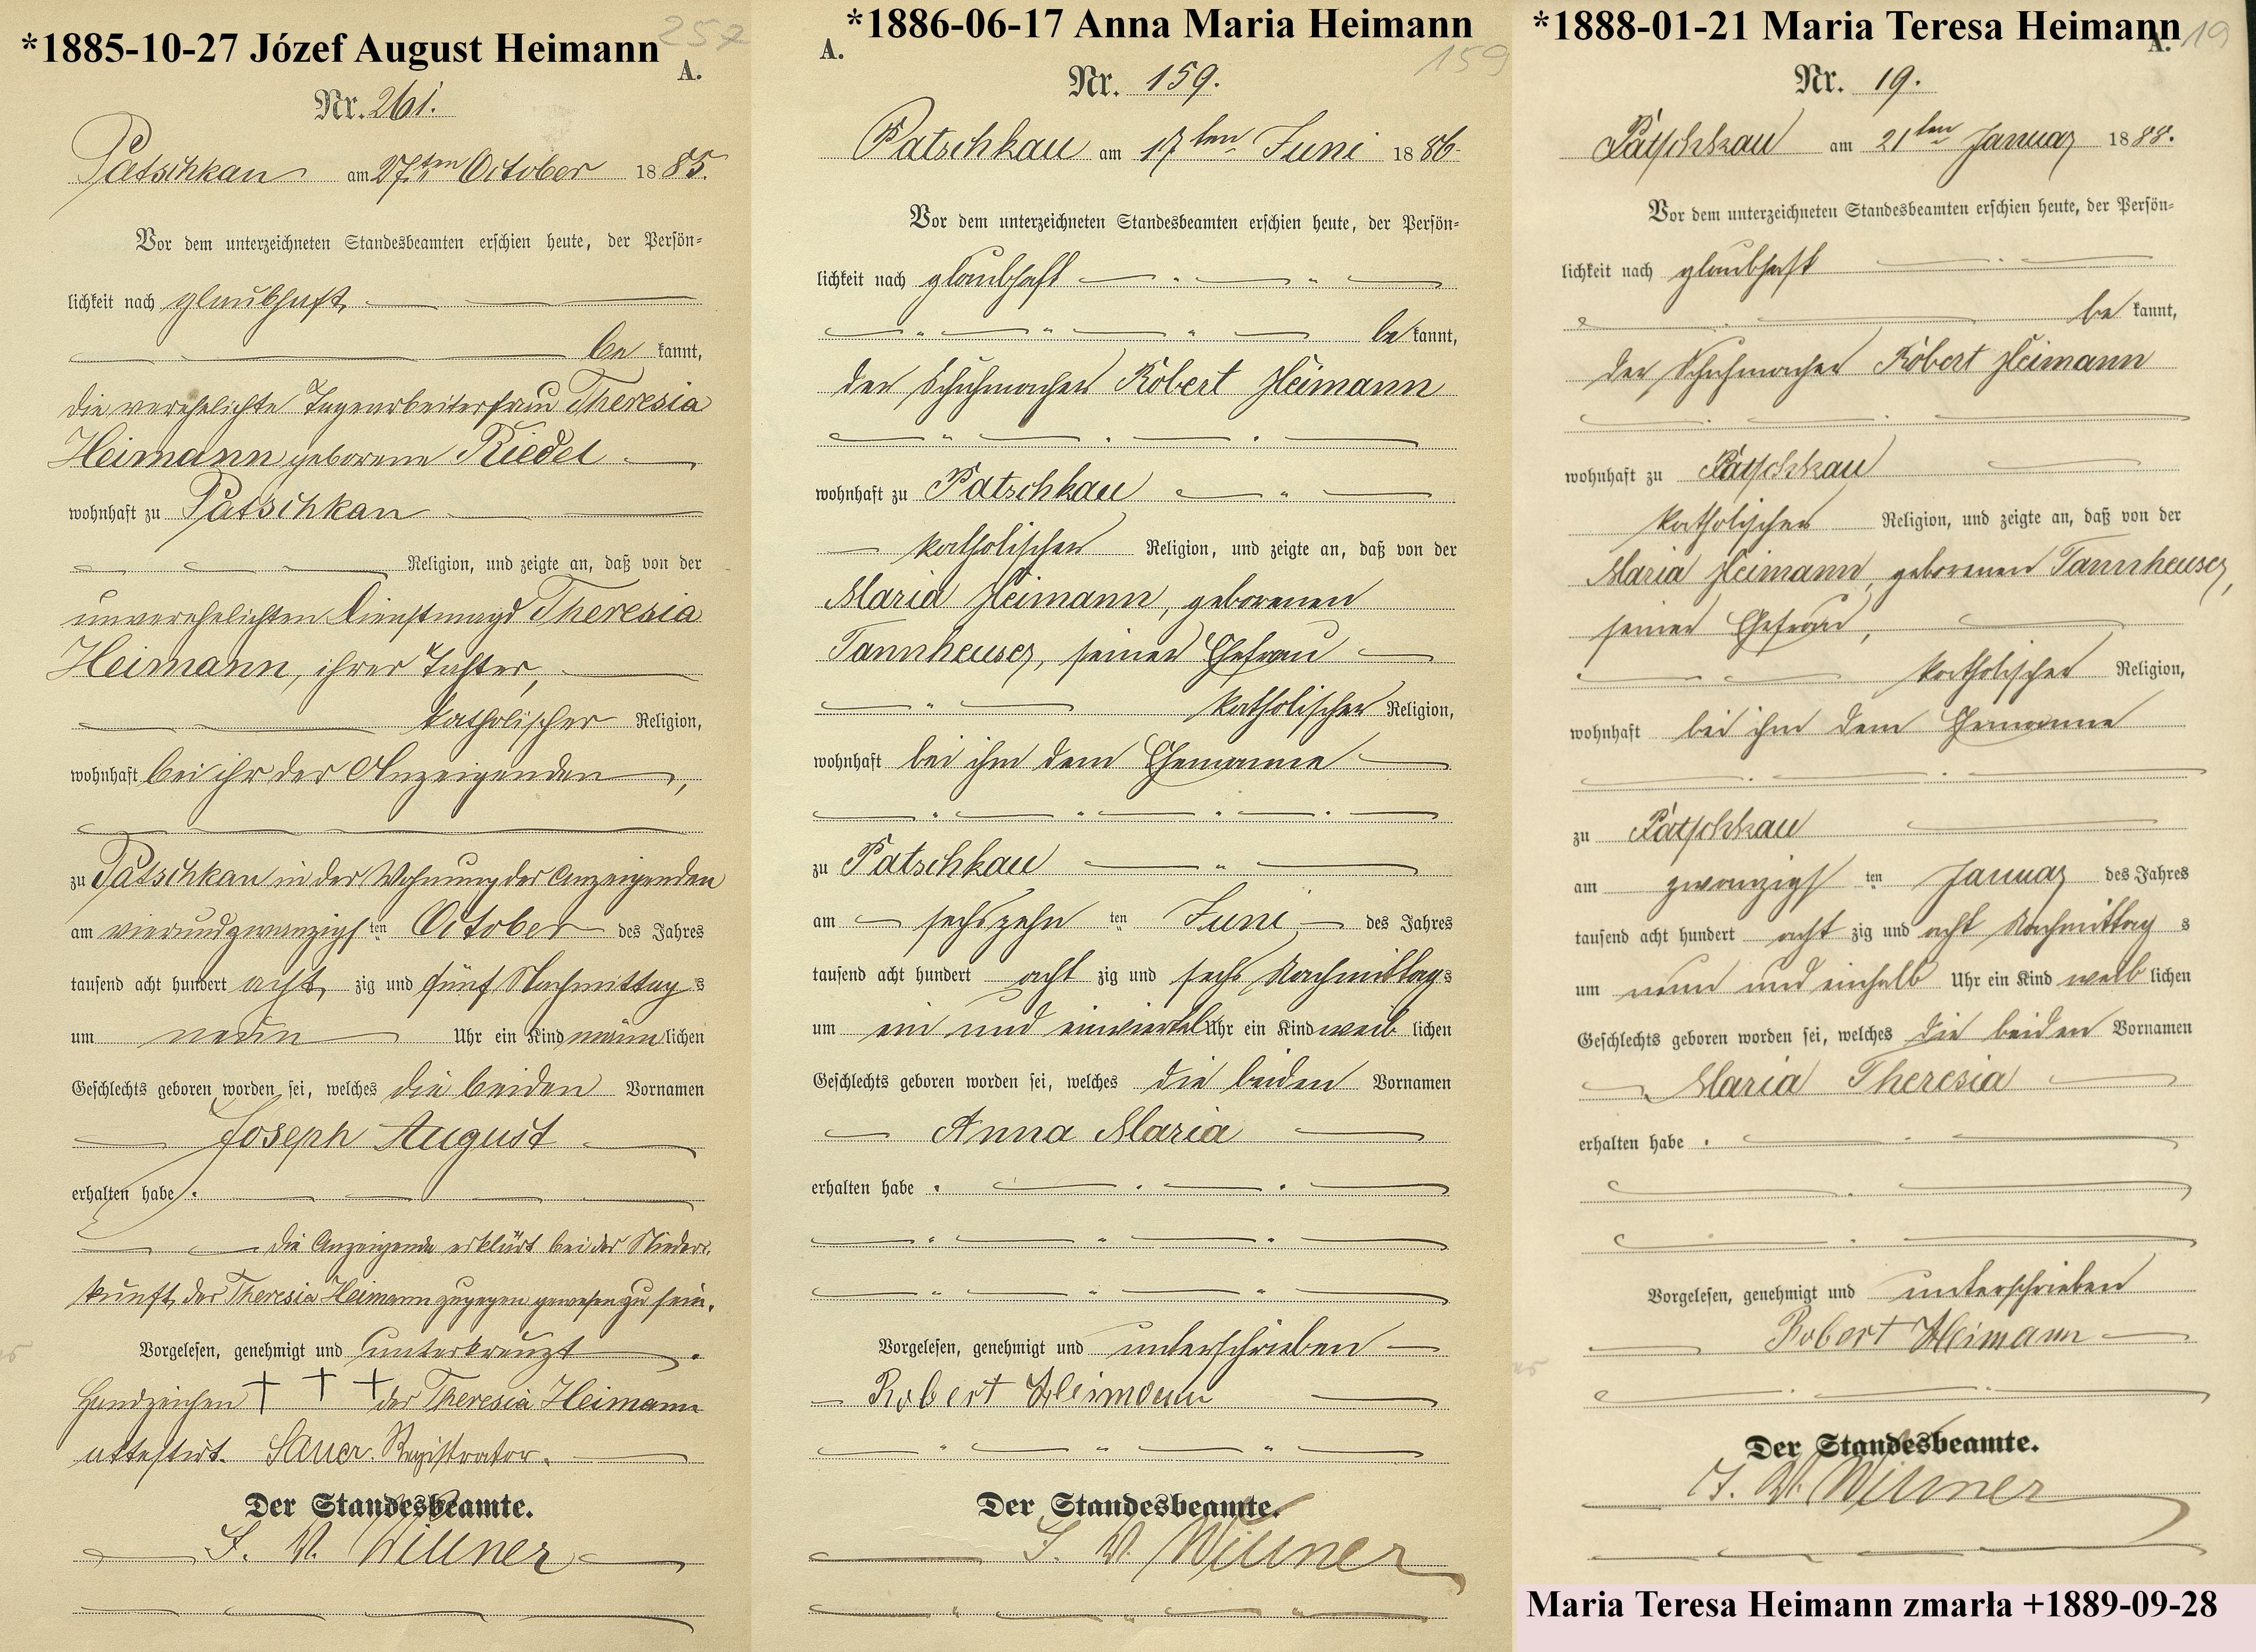 *1885-10-27 Józef August Heimann
257
A.
Nr. 261.
Patschkau am 27ten October 1885.
Vor dem unterzeichneten Standesbeamten erschien heute, der Persön-
lichkeit nach glaubhaft
be kannt,
die verehelichte Tagearbeiterfrau Theresia
Heimann geborene Riedel
wohnhaft zu Patschkau
Religion, und zeigte an, daß von der
unverehelichten Dienstmagd Theresia
Heimann, ihrer Tochter,
katholischer Religion,
wohnhaft bei ihr der Anzeigenden,
zu Patschkau in der Wohnung der Anzeigenden
am vierundzwanzigsten October des Jahres
tausend acht hundert acht zig und fünf Nachmittags
um neun Uhr ein Kind männlichen
Geschlechts geboren worden sei, welches die beiden Vornamen
Joseph August
erhalten habe.
Die Anzeigende erklärt bei der Nieder-
kunft der Theresia Heimann zugegen gewesen zu sein.
Vorgelesen, genehmigt und unterkreuzt.
Handzeichen † † † der Theresia Heimann
attestirt. Sauer. Registrator.
Der Standesbeamte.
I. V. Willner
*1886-06-17 Anna Maria Heimann
A.
159
Nr. 159.
Patschkau am 17ten Juni 1886.
Vor dem unterzeichneten Standesbeamten erschien heute, der Persön-
lichkeit nach glaubhaft
be kannt,
der Schuhmacher Robert Heimann
wohnhaft zu Patschkau
katholischer Religion, und zeigte an, daß von der
Maria Heimann, geborenen
Tannheuser, seiner Ehefrau
katholischer Religion,
wohnhaft bei ihm dem Ehemanne
zu Patschkau
am sechszehn ten Juni des Jahres
tausend acht hundert acht zig und sechs Nachmittags
um ein und einviertel Uhr ein Kind weib lichen
Geschlechts geboren worden sei, welches die beiden Vornamen
Anna Maria
erhalten habe.
Vorgelesen, genehmigt und unterschrieben
Robert Heimann
Der Standesbeamte.
I. V. Willner
*1888-01-21 Maria Teresa Heimann
A.
19
Nr. 19.
Patschkau am 21ten Januar 1888.
Vor dem unterzeichneten Standesbeamten erschien heute, der Persön-
lichkeit nach glaubhaft
be kannt,
der Schuhmacher Robert Heimann
wohnhaft zu Patschkau
katholischer Religion, und zeigte an, daß von der
Maria Heimann, geborenen Tannheuser,
seiner Ehefrau,
katholischer Religion,
wohnhaft bei ihm dem Ehemanne
zu Patschkau
am zwanzigs ten Januar des Jahres
tausend acht hundert acht zig und acht Nachmittag s
um neun und einhalb Uhr ein Kind weib lichen
Geschlechts geboren worden sei, welches die beiden Vornamen
Maria Theresia
erhalten habe.
Vorgelesen, genehmigt und unterschrieben
Robert Heimann
Der Standesbeamte.
I. V. Willner
Maria Teresa Heimann zmarła +1889-09-28